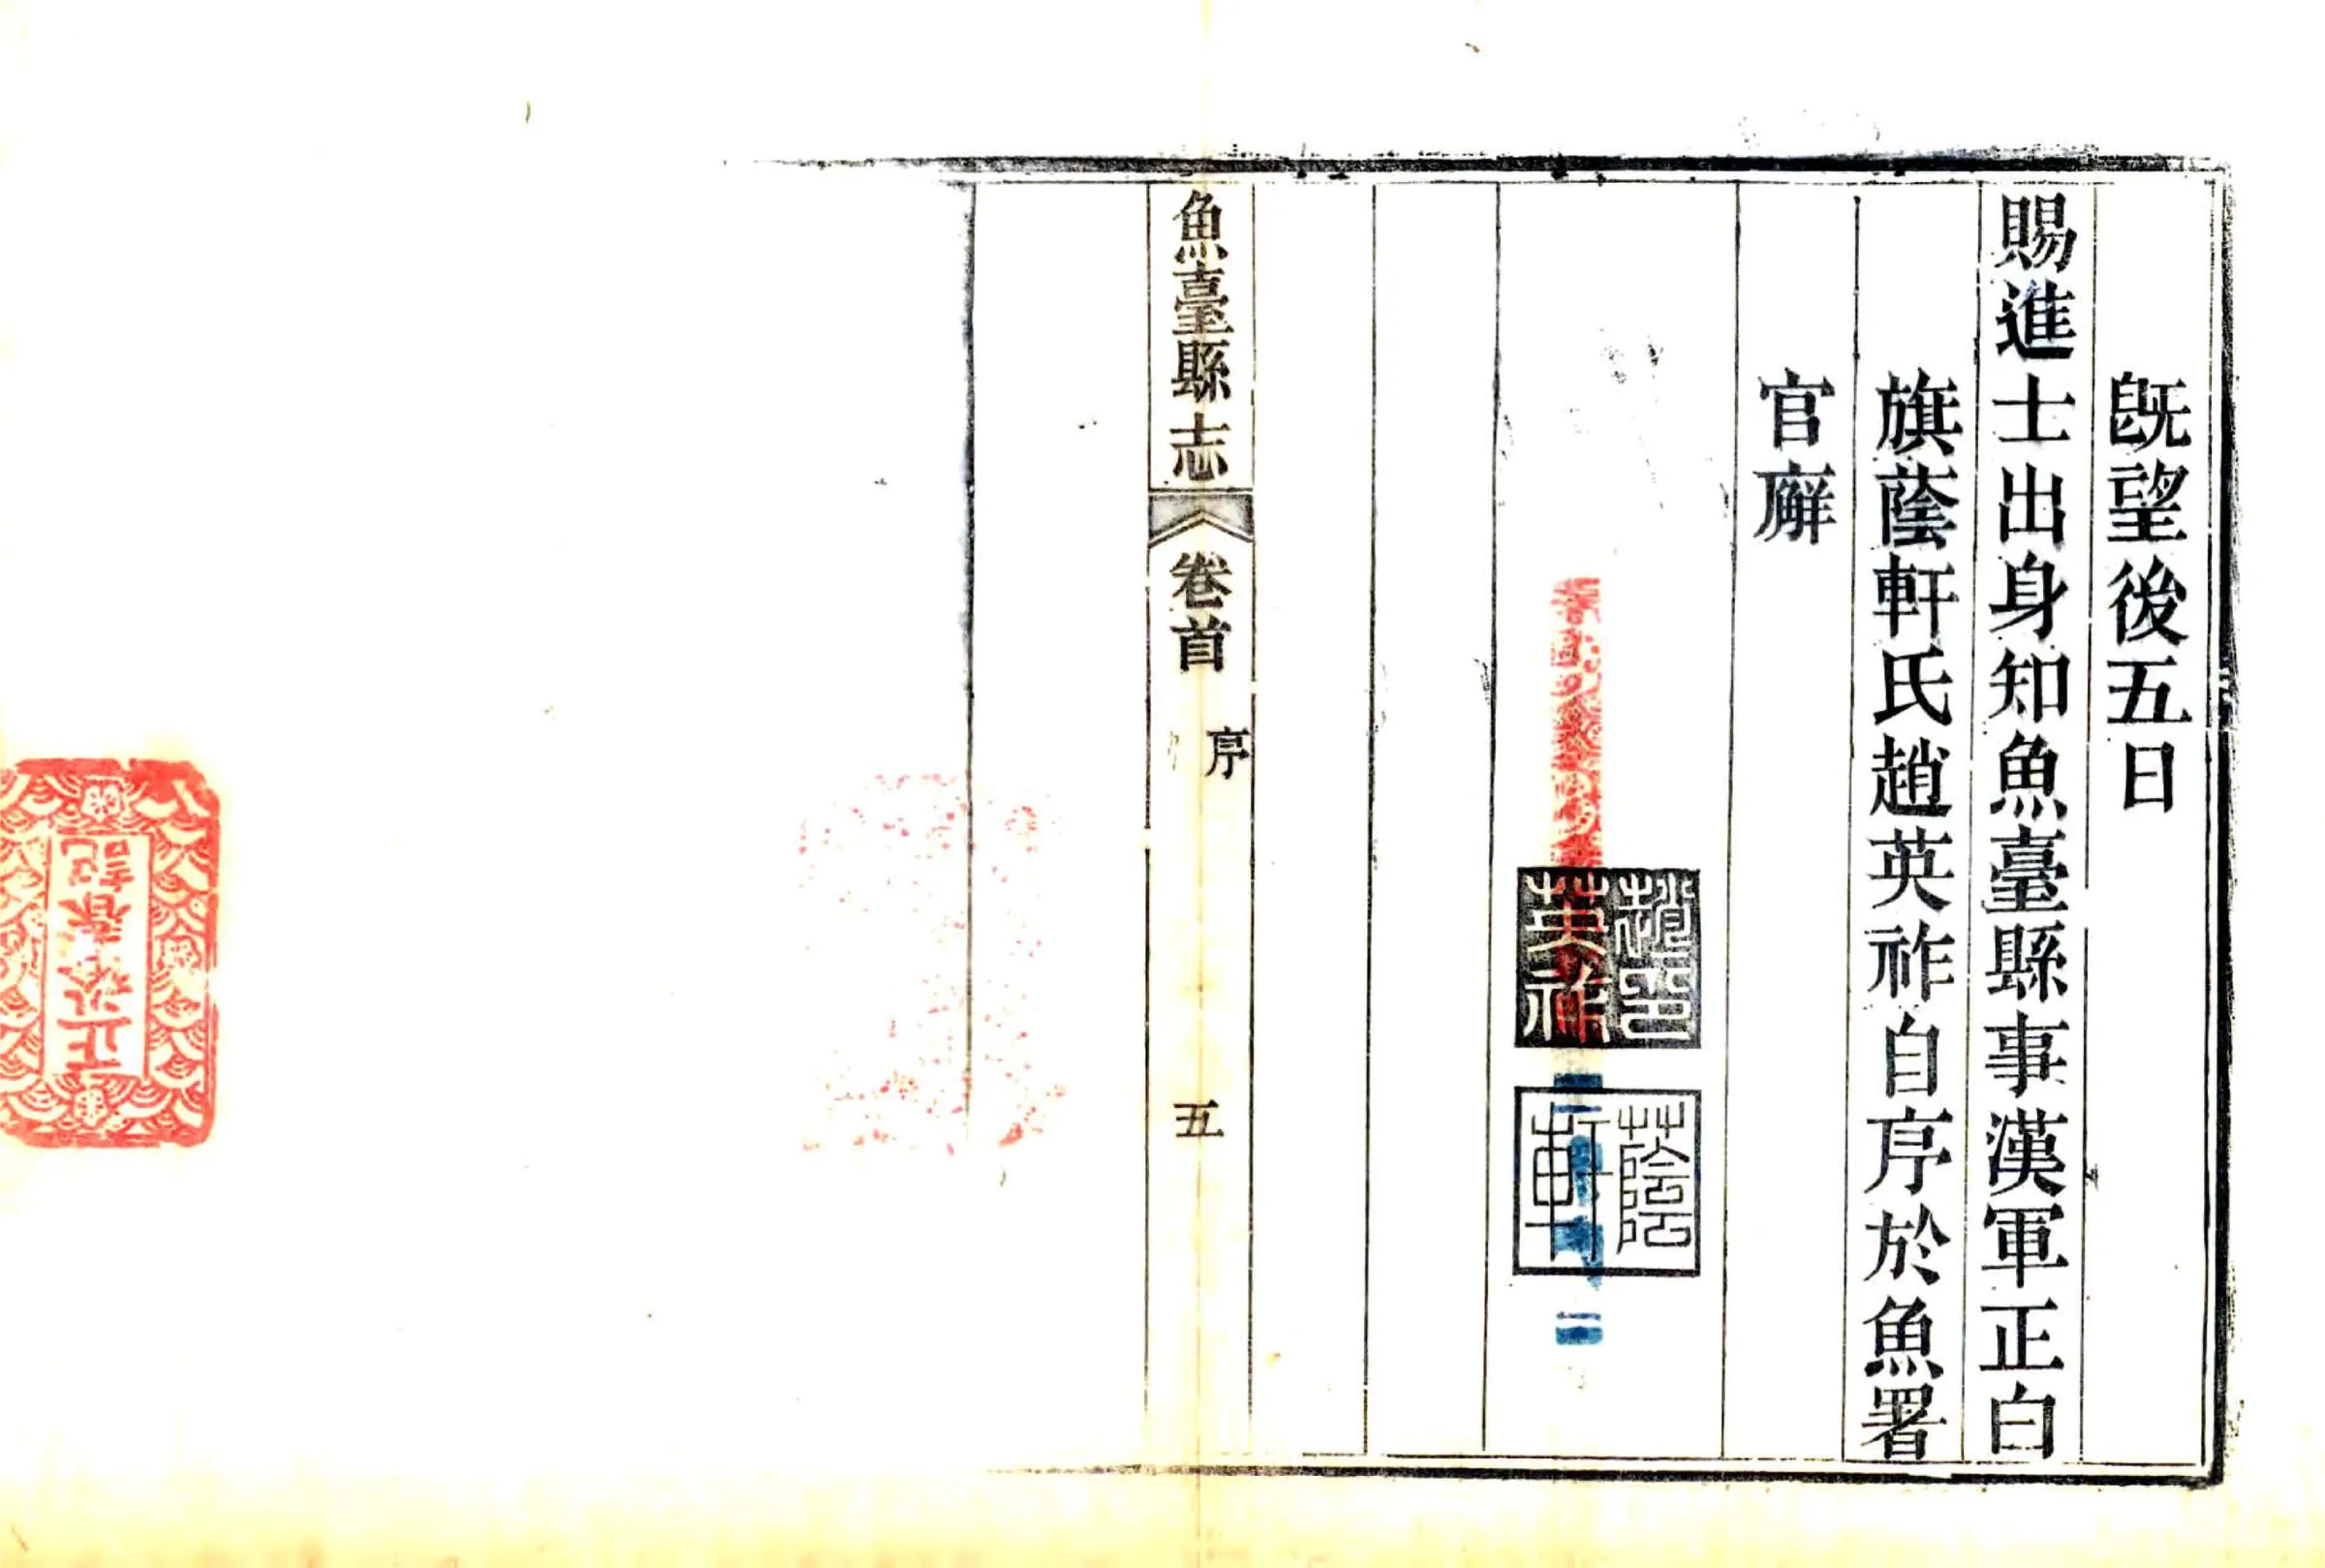 旣望後五日
賜進士出身知魚臺縣事漢軍正白
旗蔭軒氏趙英祚自序於魚署
官廨
趙印
英祚
蔭
軒
魚臺縣志
卷首
序
五